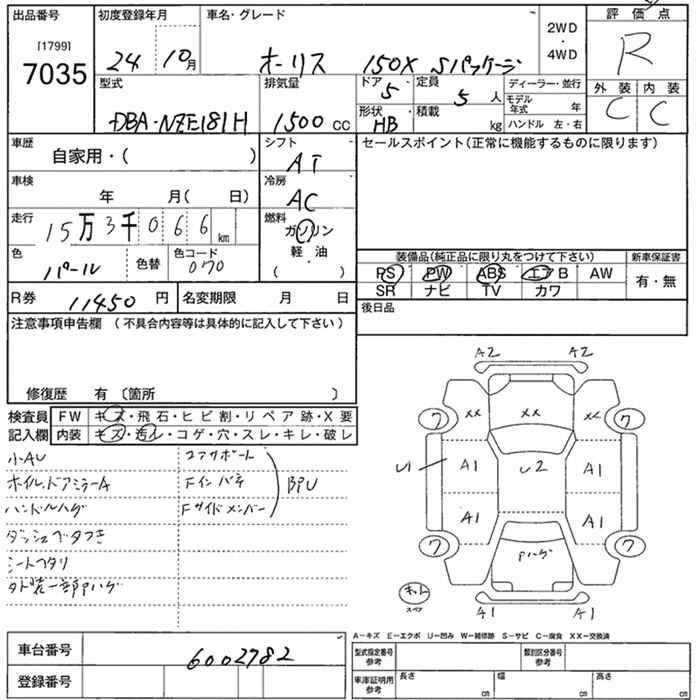 出品番号
[1799]
7035
初度登録年月
24 10月
車名・グレード
オーリス 150X Sパッケージ
2WD
・
4WD
評価点
R
外装 内装
C C
型式
DBA-NZE181H
排気量
1500 cc
ドア
5
定員
5 人
形状
HB
積載
kg
ディーラー・並行
モデル年式 年
ハンドル 左・右
車歴
自家用・( )
シフト
AT
セールスポイント(正常に機能するものに限ります)
車検
年 月( 日)
冷房
AC
走行
15万3千066km
燃料
ガソリン
軽・油
( )
色
パール
色替
色コード
070
装備品(純正品に限り丸をつけて下さい)
新車保証書
PS PW ABS エアB AW
SR ナビ TV カワ
有・無
R券
11450 円
名変期限 月 日
後日品
注意事項申告欄 (不具合内容等は具体的に記入して下さい)
修復歴 有 〔箇所 〕
検査員
記入欄
FW キズ・飛石・ヒビ割・リペア跡・X要
内装 キズ・汚レ・コゲ・穴・スレ・キレ・破レ
小AU
ホイル.ドアミラーA
ハンドルハゲ
シートヘタリ
外装一部Pハゲ
コアサポート
Fインパネ
Fサイドメンバー
BPU
A2 A2
XX XX XX
ワ ワ
U1
A1 U2 A1
A1 A1
ワ ワ
Pハゲ
A1 A1
A−キズ E−エクボ U−凹み W−補修跡 S−サビ C−腐食 XX−交換済
車台番号
6002782
登録番号
型式指定番号
参考
類別区分番号
参考
車庫証明用
参考
長さ cm
幅 cm
高さ cm